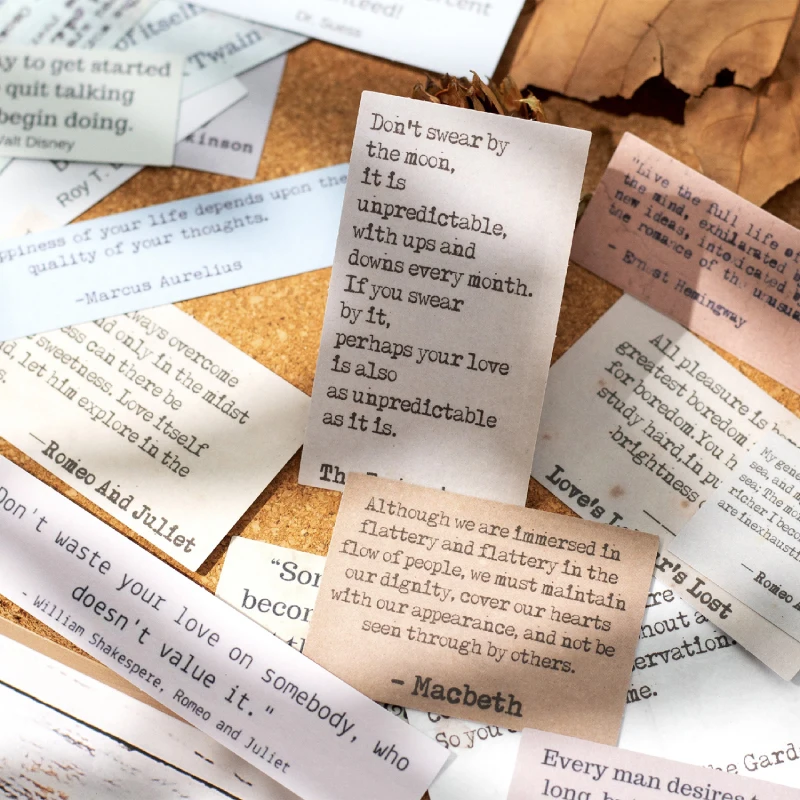 of itself
Twain
Dr. Suess
y to get started
quit talking
begin doing.
Walt Disney
kinson
Roy T.
ppiness of your life depends upon the
quality of your thoughts.
-Marcus Aurelius
Don't swear by
the moon,
it is
unpredictable,
with ups and
downs every month.
If you swear
by it,
perhaps your love
is also
as unpredictable
as it is.
"Live the full life of
the mind, exhilarated b
new ideas, intoxicated b
the romance of the unusua
- Ernest Hemingway
ways overcome
nd only in the midst
ss can there be
sweetness. Love itself
d, let him explore in the
s.
—Romeo And Juliet
All pleasure is b
greatest boredom
for boredom. You h
study hard in pu
brightness
Love's L
r's Lost
My gene
sea, and m
sea; The mo
richer I becom
are inexhausti
— Romeo A
Don't waste your love on somebody, who
doesn't value it."
- William Shakespere, Romeo and Juliet
"Som
becom
Although we are immersed in
flattery and flattery in the
flow of people, we must maintain
our dignity, cover our hearts
with our appearance, and not be
seen through by others.
- Macbeth
re
hout a
ervation
me.
So you
he Gard
Every man desires t
long, b